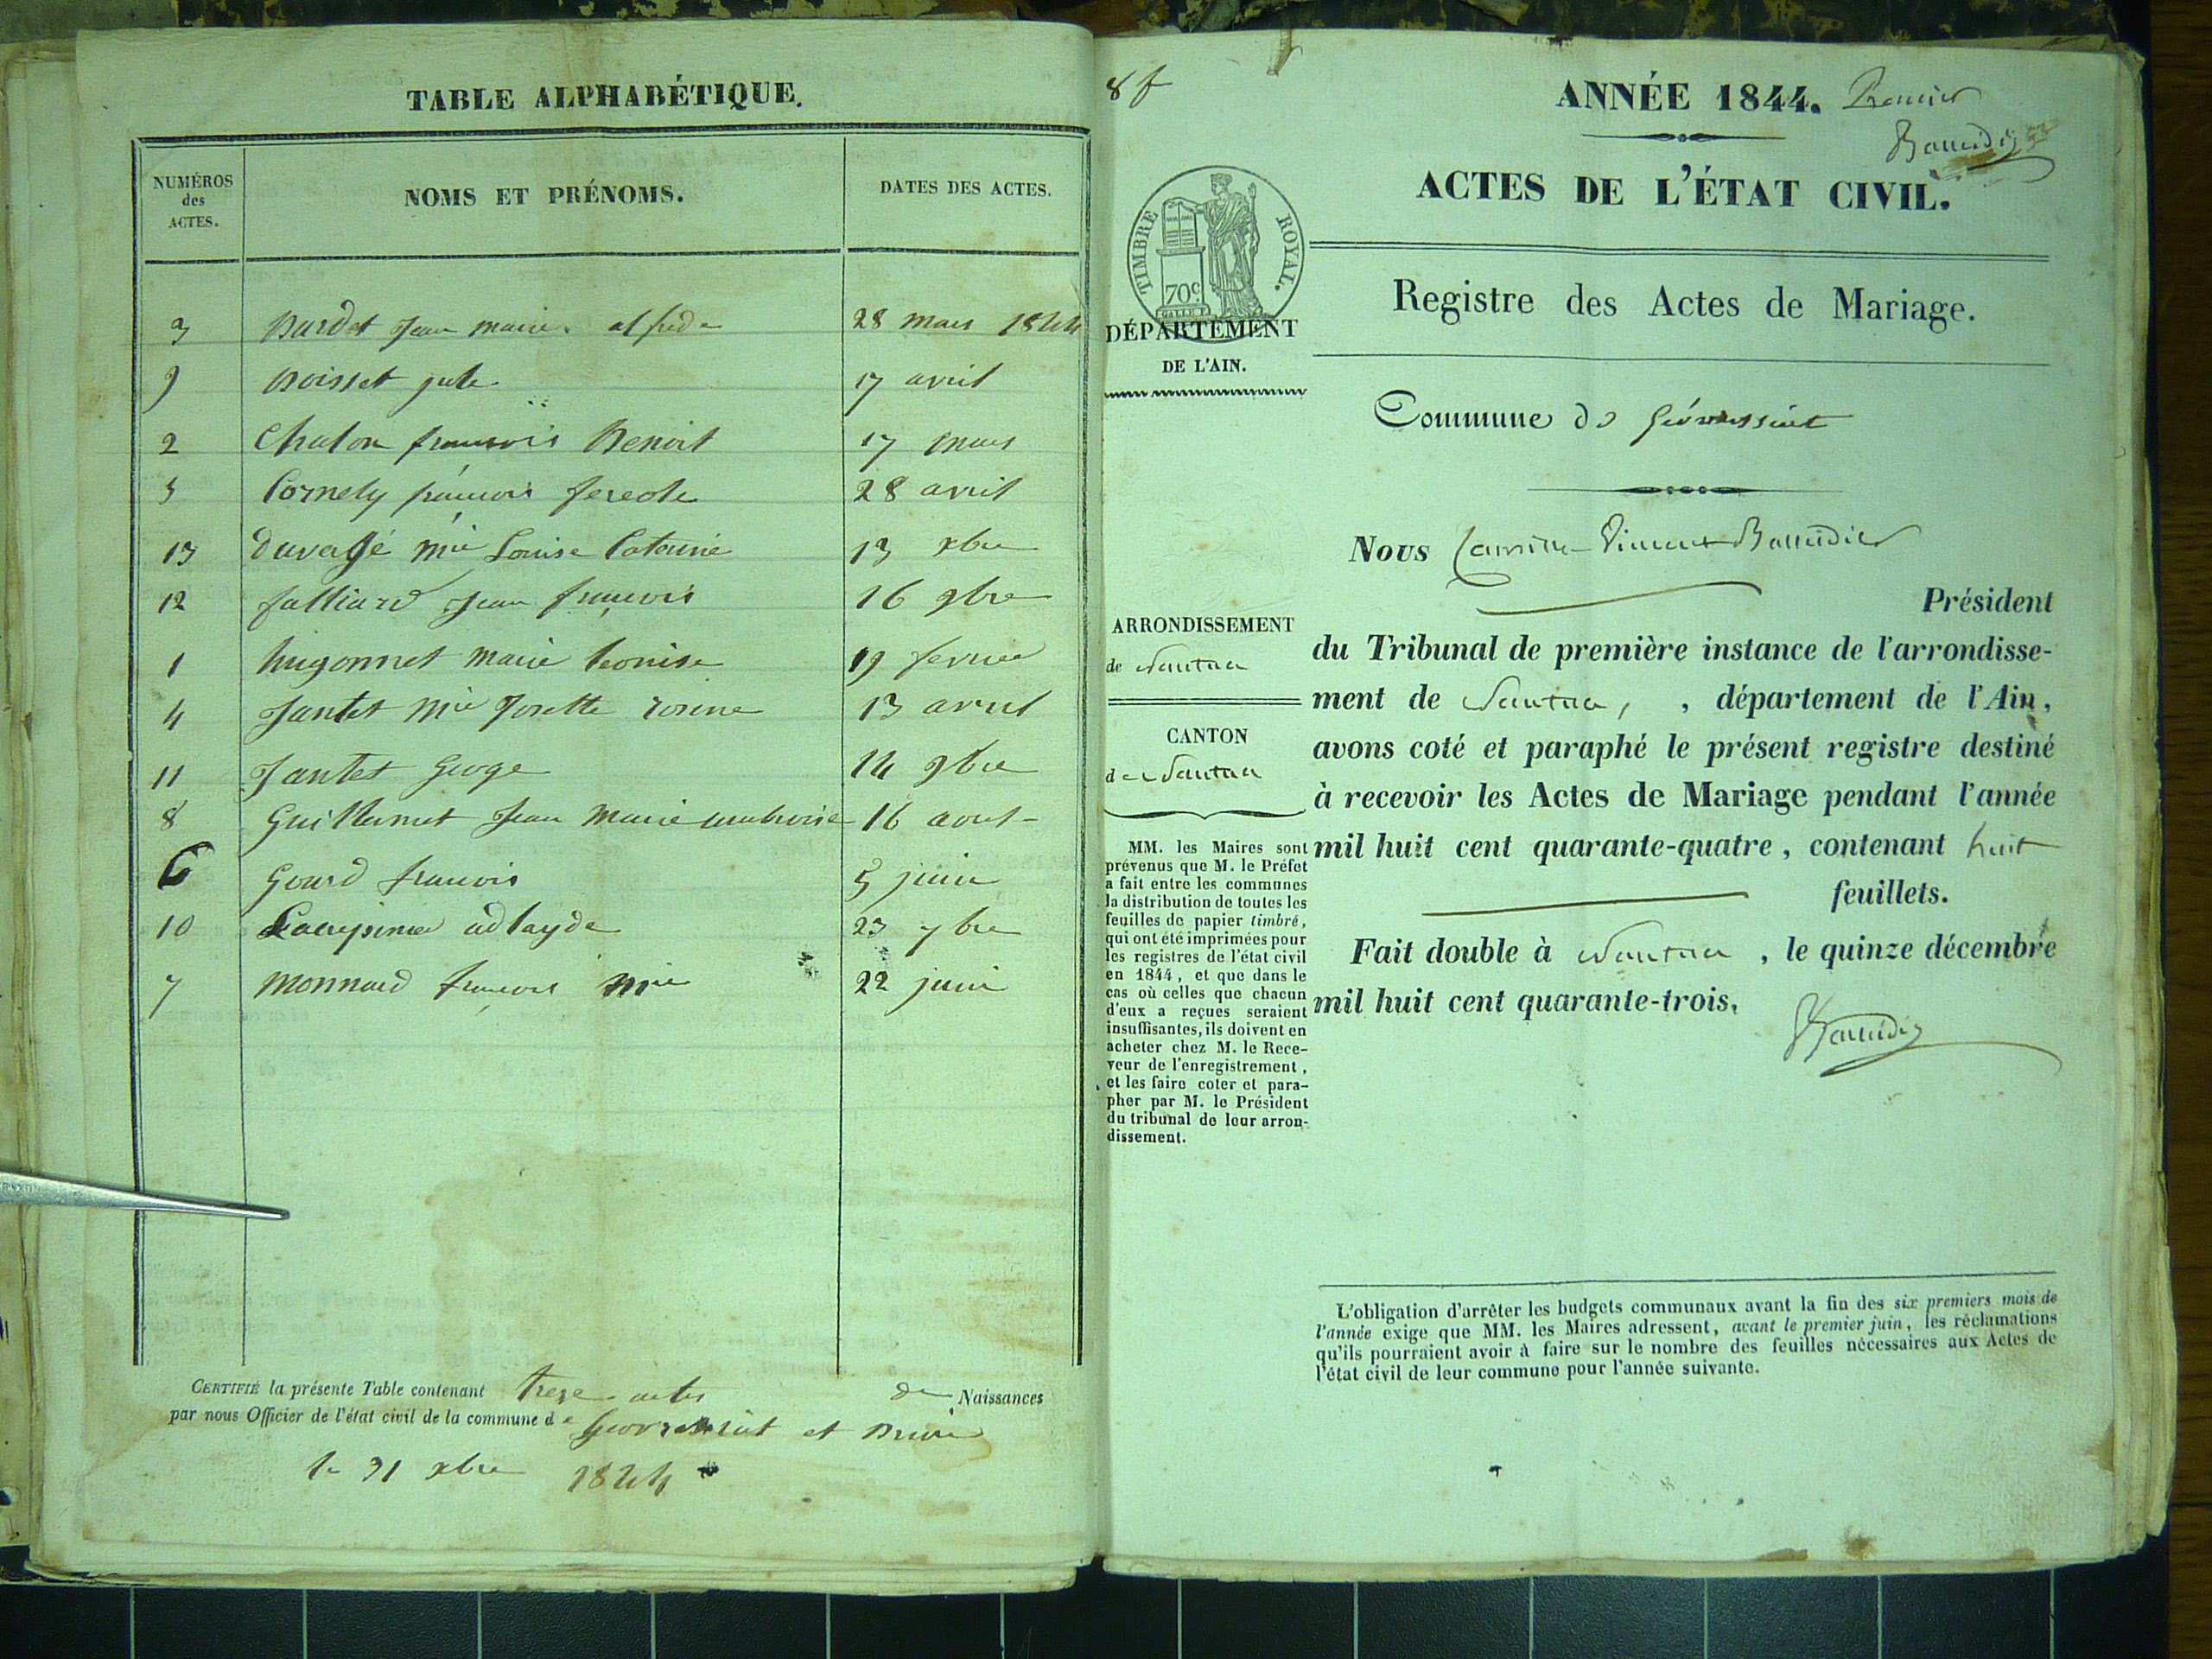 TABLE ALPHABÉTIQUE.
NUMÉROS
des
ACTES.
NOMS ET PRÉNOMS.
DATES DES ACTES.
3 Burdet Jean marie alfred 28 mars 1844
9 Boisset jule 17 avril
2 Chalon françois Benoit 17 mars
5 Cornely françois 28 avril
13 mie Louise 13 xbre
12 falliard Jean françois 16 9bre
1 hugonnet marie leonise 19 fevrier
4 Jantet mie Josette rosine 13 avril
11 Jantet George 14 9bre
8 Guillermet Jean Marie ambroise 16 aout
6 Gourd francois 5 juin
10 adlayde 23 7bre
7 Monnard françois mie 22 juin
CERTIFIÉ la présente Table contenant treze actes de Naissances
par nous Officier de l'état civil de la commune de et
le 31 xbre 1844
8 f
ANNÉE 1844. Premier
ACTES DE L'ÉTAT CIVIL.
TIMBRE ROYAL.
70c
Registre des Actes de Mariage.
DÉPARTEMENT
DE L'AIN.
Commune de
Nous
Président
ARRONDISSEMENT
de Nantua
CANTON
de Nantua
du Tribunal de première instance de l'arrondisse-
ment de Nantua, , département de l'Ain,
avons coté et paraphé le présent registre destiné
à recevoir les Actes de Mariage pendant l'année
mil huit cent quarante-quatre, contenant huit
feuillets.
Fait double à Nantua , le quinze décembre
mil huit cent quarante-trois,
MM. les Maires sont
prévenus que M. le Préfet
a fait entre les communes
la distribution de toutes les
feuilles de papier timbré,
qui ont été imprimées pour
les registres de l'état civil
en 1844, et que dans le
cas où celles que chacun
d'eux a reçues seraient
insuffisantes, ils doivent en
acheter chez M. le Rece-
veur de l'enregistrement,
et les faire coter et para-
pher par M. le Président
du tribunal de leur arron-
dissement.
L'obligation d'arrêter les budgets communaux avant la fin des six premiers mois de
l'année exige que MM. les Maires adressent, avant le premier juin, les réclamations
qu'ils pourraient avoir à faire sur le nombre des feuilles nécessaires aux Actes de
l'état civil de leur commune pour l'année suivante.